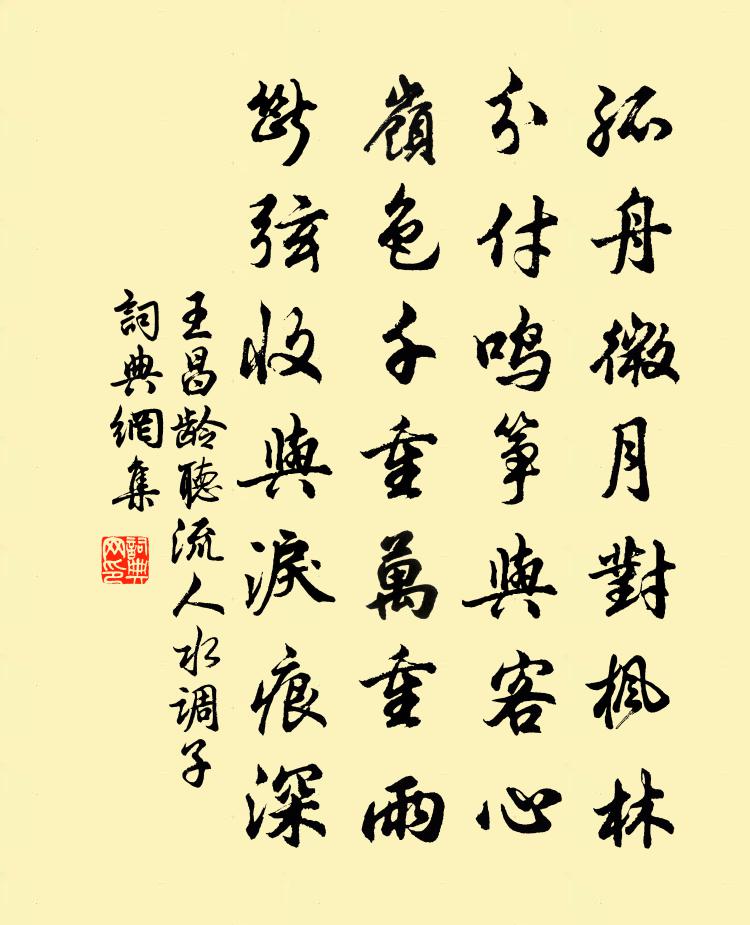 孤舟微月對楓林
分付鳴箏與客心
嶺色千重萬重雨
斷弦收與淚痕深
王昌龄聽流人水调子
詞典網集
詞典
网印